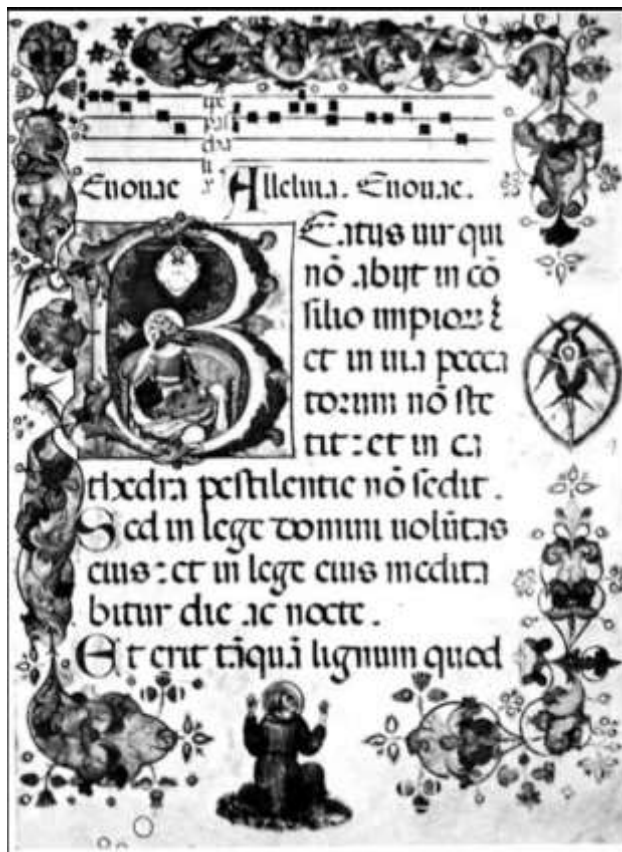 Euouae Alleluia. Euouae.
BEatus uir qui
nō abijt in cō
silio impiorū
et in uia pecca
torum nō ste
tit: et in ca
thedra pestilentie nō sedit.
Sed in lege domini uolūtas
eius: et in lege eius medita
bitur die ac nocte.
Et erit tāquā lignum quod